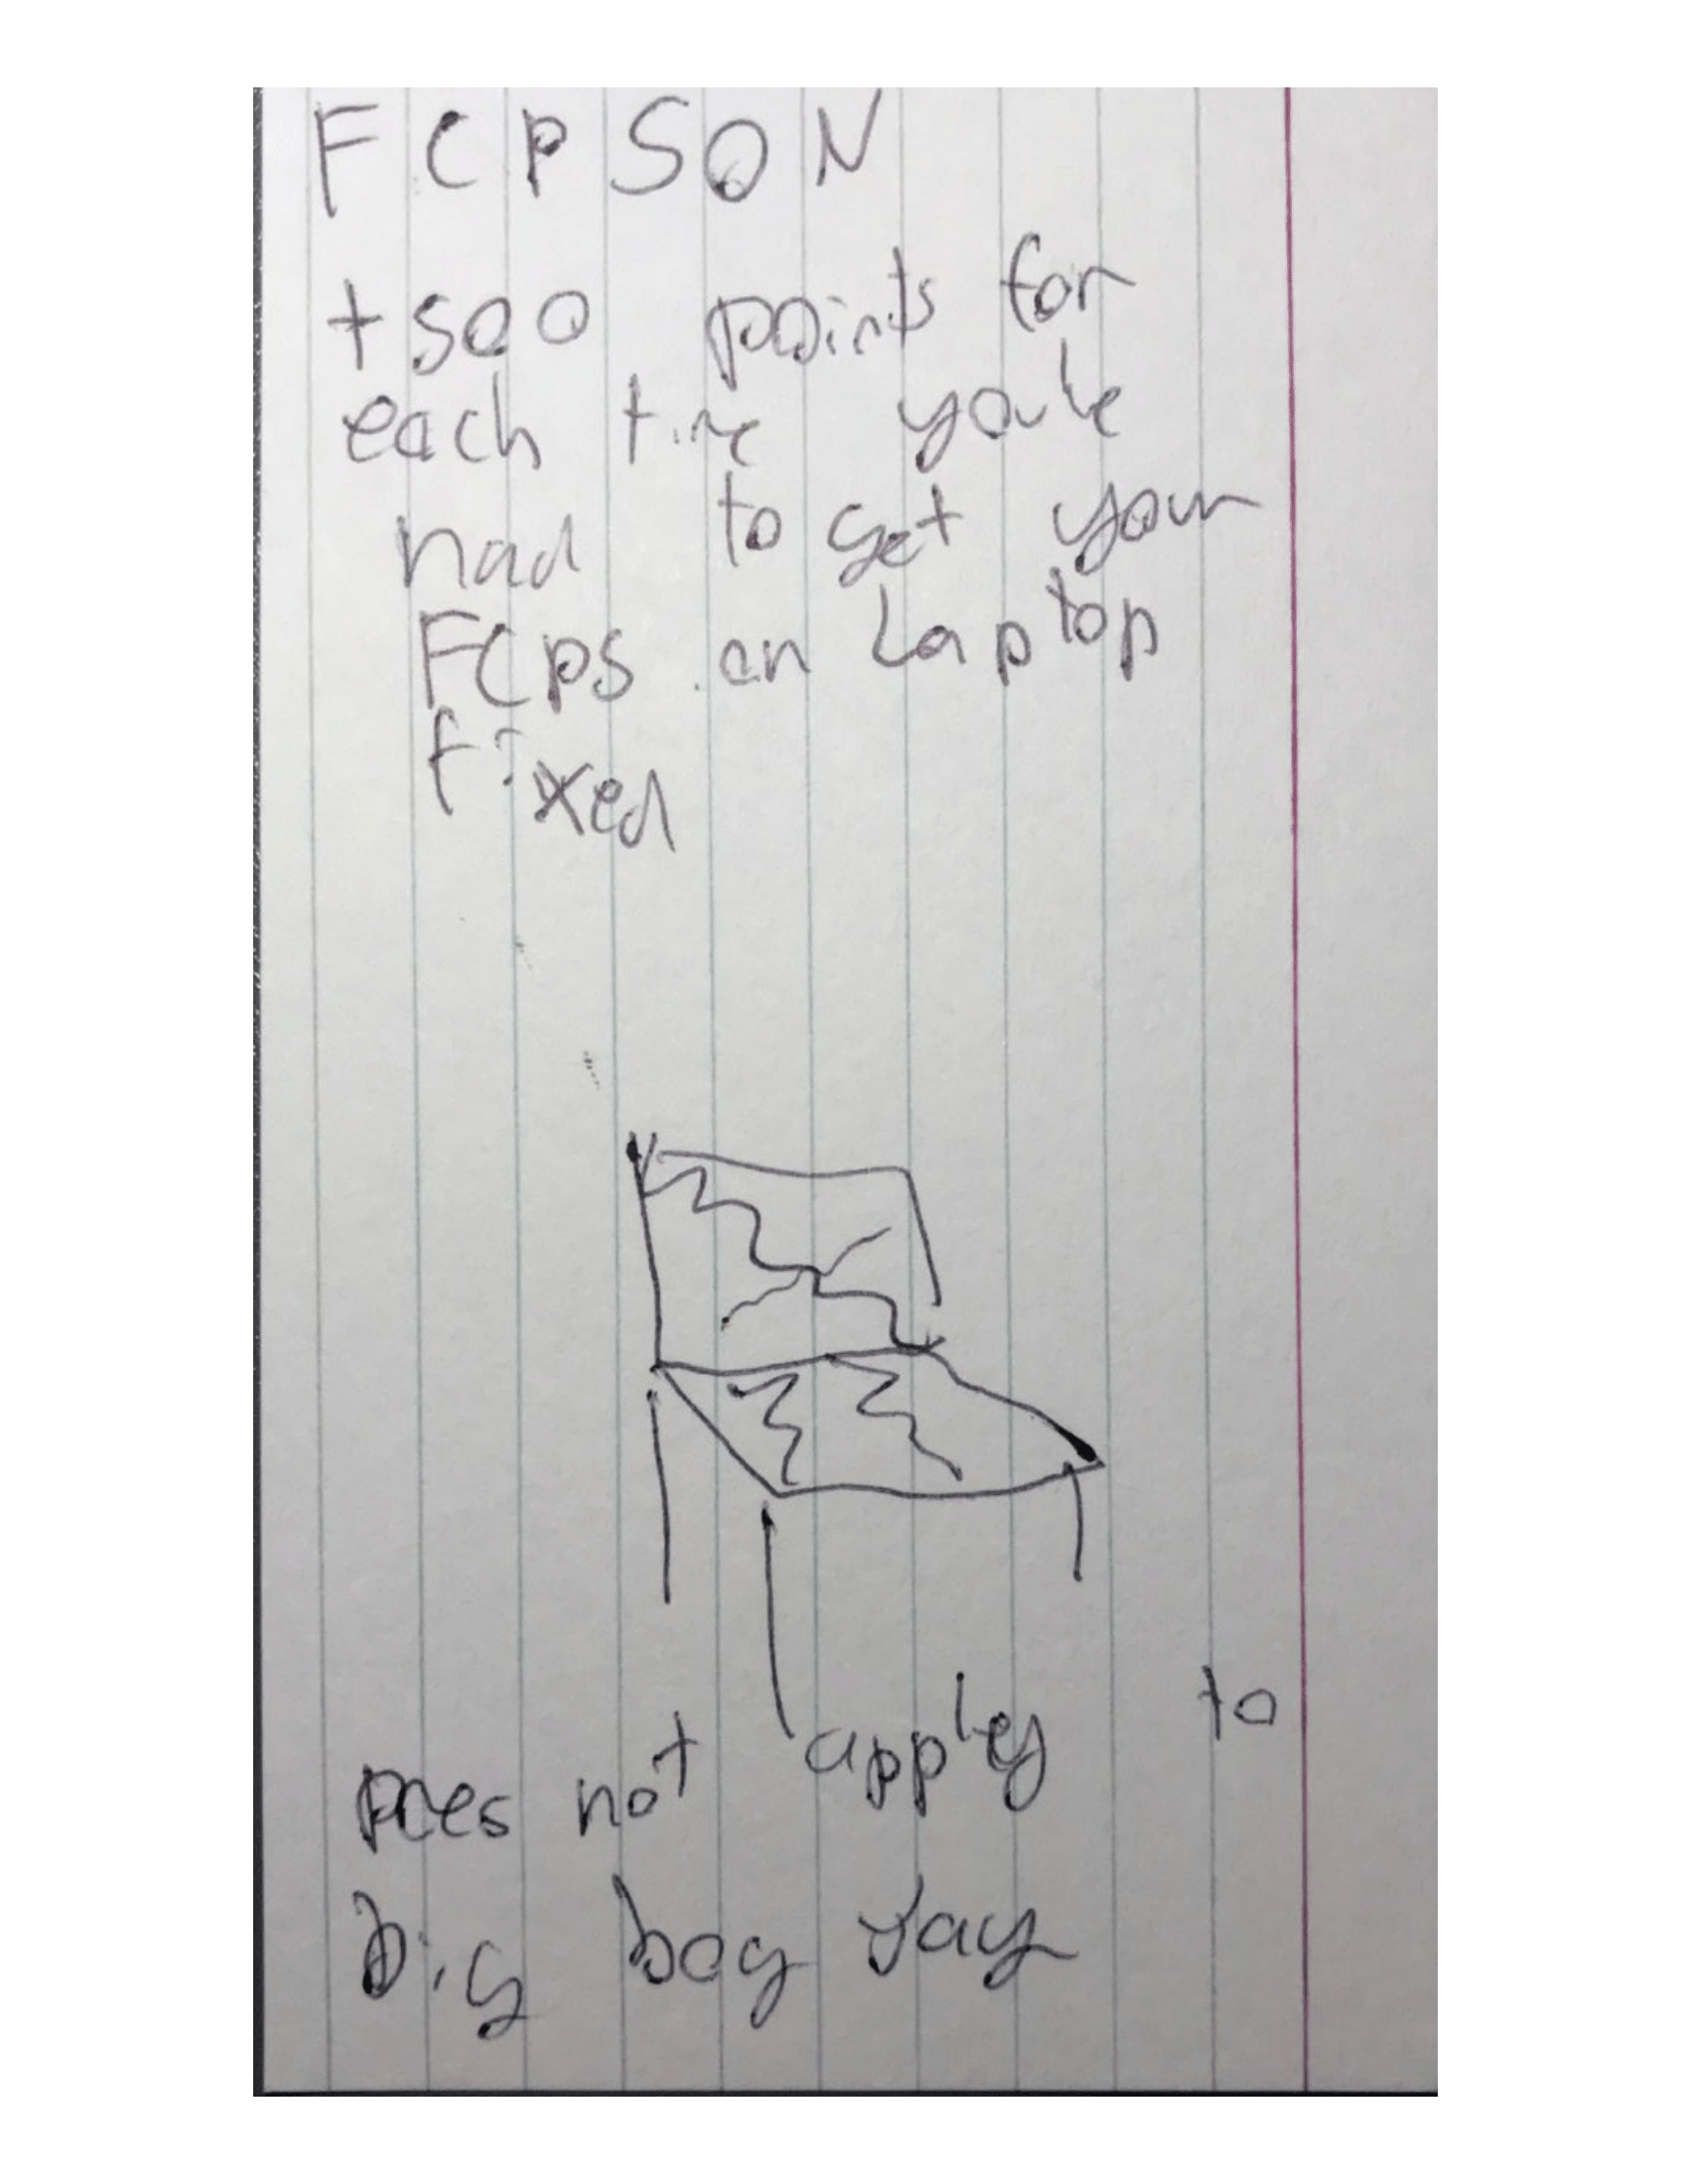 FCPSON
+500 points for
each time you've
had to get your
FCPS on Laptop
fixed
Does not apply to
big boy Jay